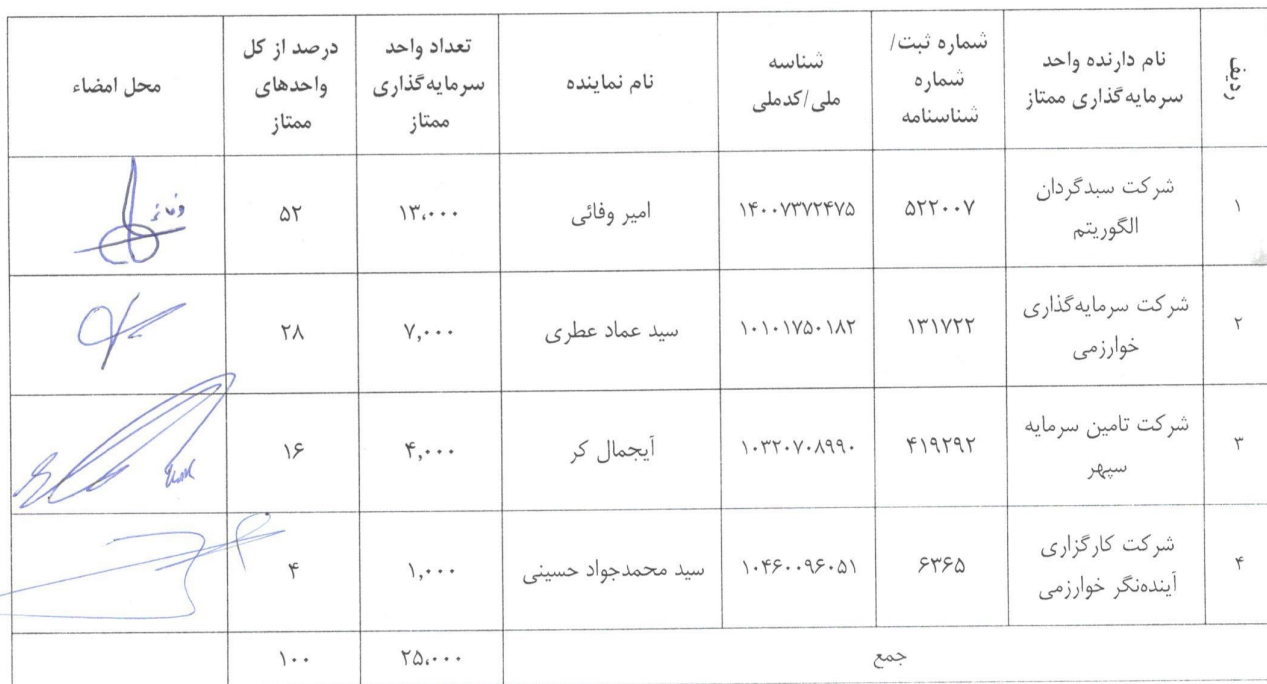 ردیف
نام دارنده واحد
سرمایه‌گذاری ممتاز
شماره ثبت/
شماره
شناسنامه
شناسه
ملی/کدملی
نام نماینده
تعداد واحد
سرمایه‌گذاری
ممتاز
درصد از کل
واحدهای
ممتاز
محل امضاء
۱
شرکت سبدگردان
الگوریتم
۵۲۲۰۰۷
۱۴۰۰۷۳۷۲۴۷۵
امیر وفائی
۱۳,۰۰۰
۵۲
۲
شرکت سرمایه‌گذاری
خوارزمی
۱۳۱۷۲۲
۱۰۱۰۱۷۵۰۱۸۲
سید عماد عطری
۷,۰۰۰
۲۸
۳
شرکت تامین سرمایه
سپهر
۴۱۹۲۹۲
۱۰۳۲۰۷۰۸۹۹۰
آیجمال کر
۴,۰۰۰
۱۶
۴
شرکت کارگزاری
آینده‌نگر خوارزمی
۶۳۶۵
۱۰۴۶۰۰۹۶۰۵۱
سید محمدجواد حسینی
۱,۰۰۰
۴
جمع
۲۵,۰۰۰
۱۰۰